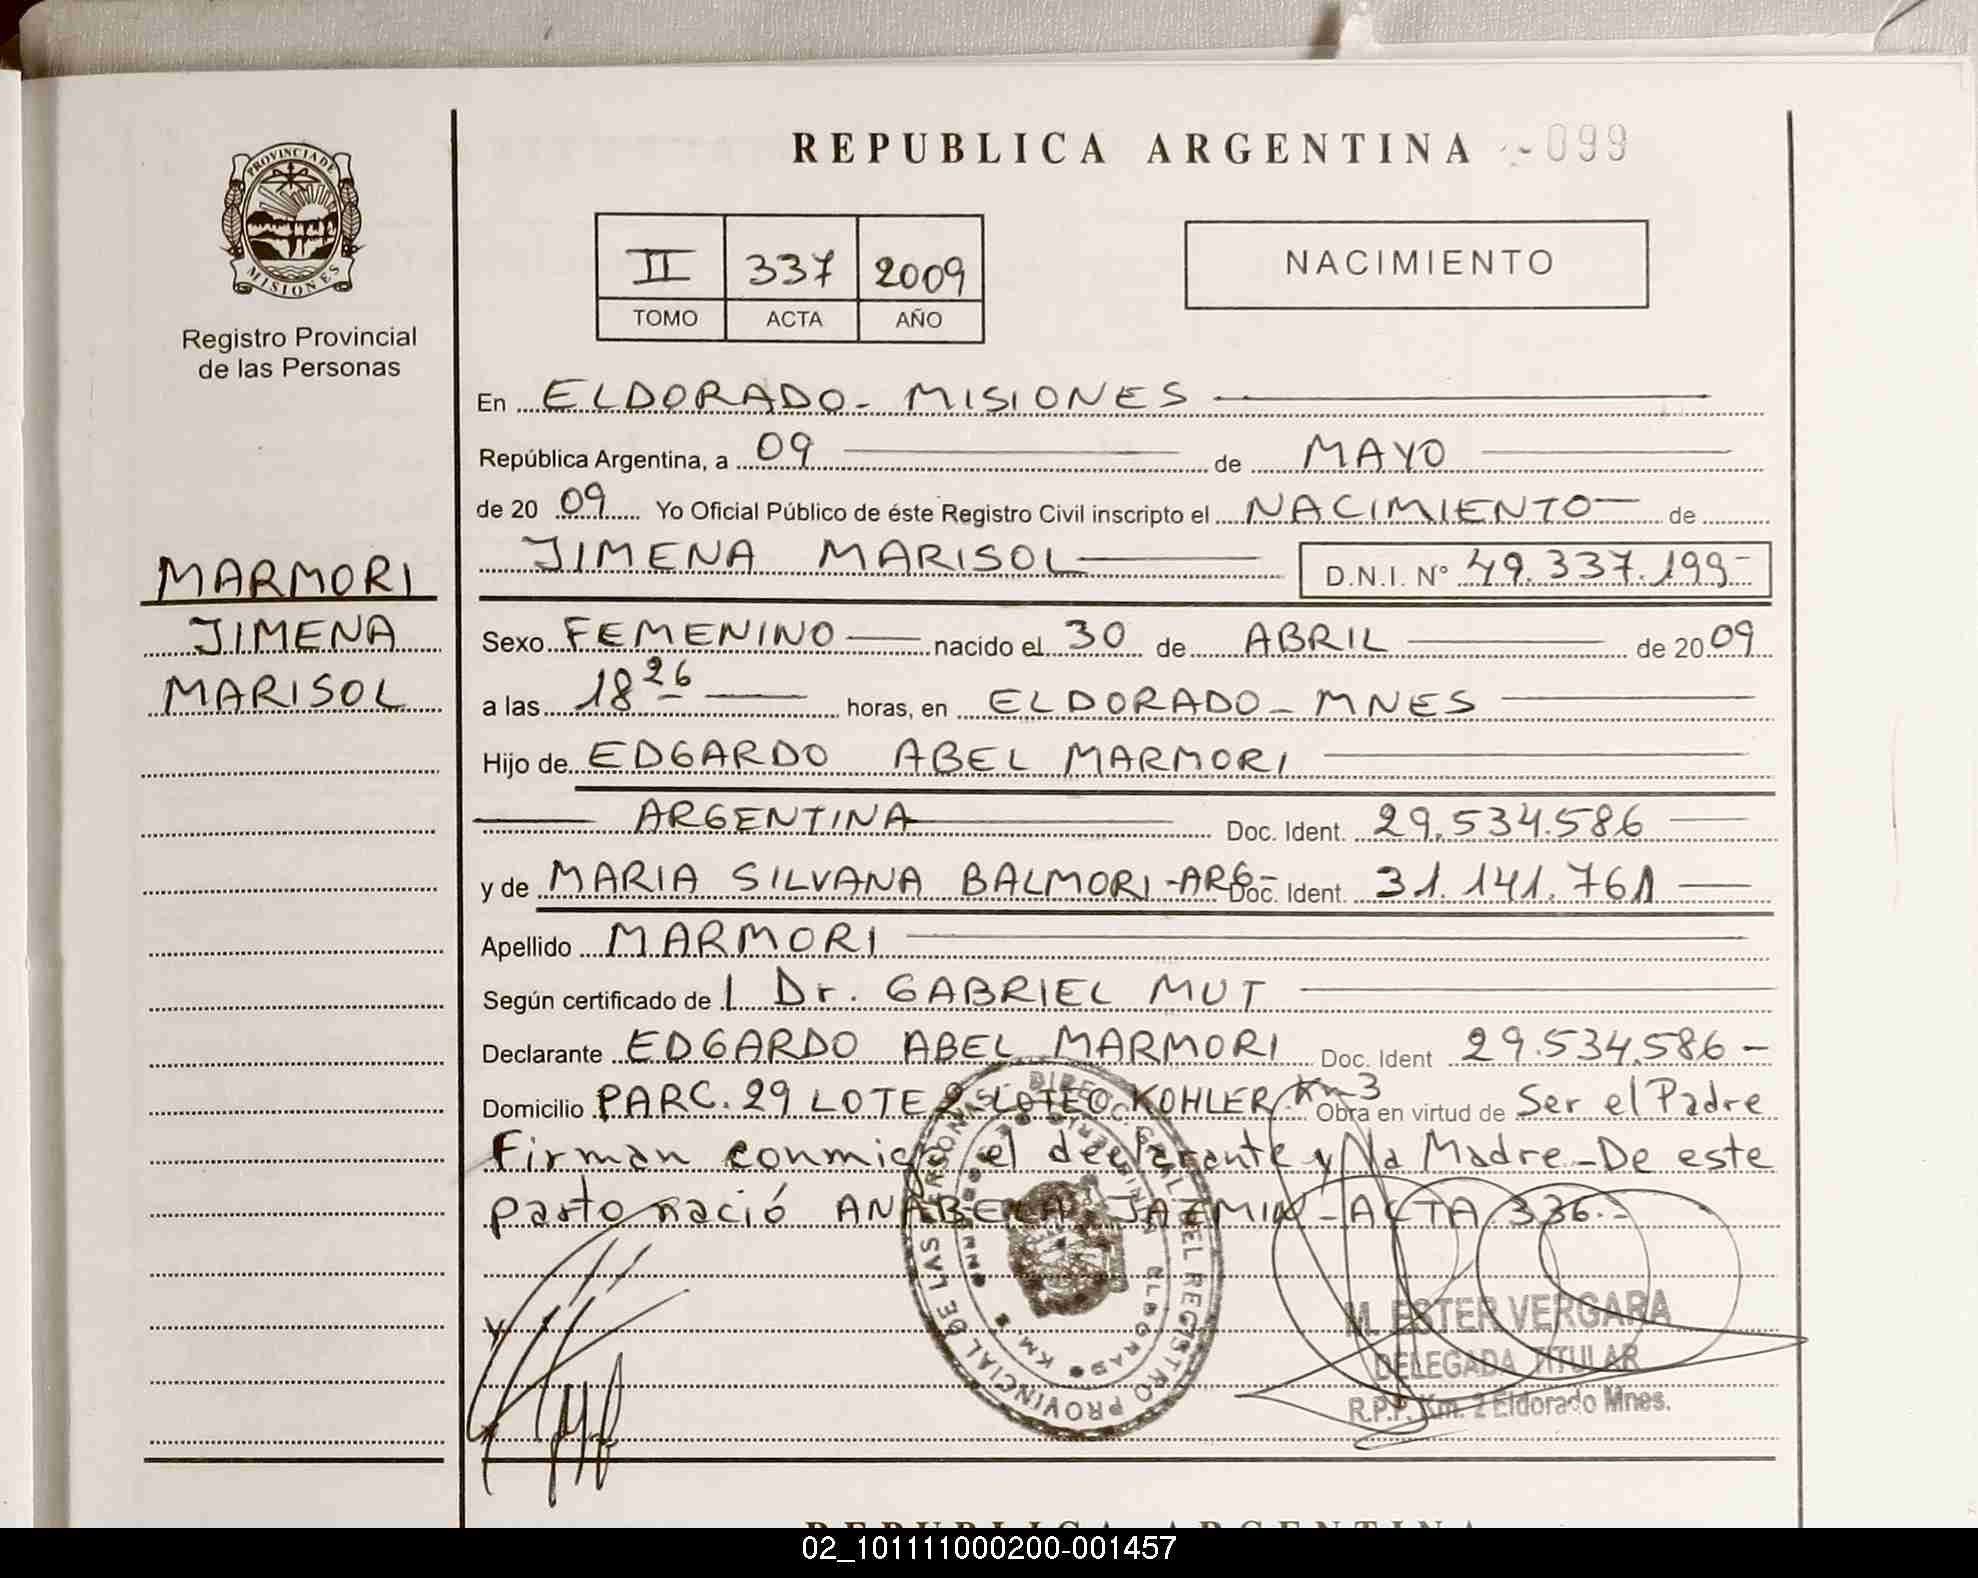 REPUBLICA ARGENTINA -099
PROVINCIA DE
MISIONES
Registro Provincial
de las Personas
II 337 2009
TOMO ACTA AÑO
NACIMIENTO
MARMORI
JIMENA
MARISOL
En ELDORADO - MISIONES
República Argentina, a 09 de MAYO
de 20 09 Yo Oficial Público de éste Registro Civil inscripto el NACIMIENTO de
JIMENA MARISOL D.N.I. N° 49.337.199-
Sexo FEMENINO nacido el 30 de ABRIL de 20 09
a las 18 26 horas, en ELDORADO - MNES
Hijo de EDGARDO ABEL MARMORI
ARGENTINA Doc. Ident. 29.534.586
y de MARIA SILVANA BALMORI -ARG- Doc. Ident. 31.141.761
Apellido MARMORI
Según certificado de Dr. GABRIEL MUT
Declarante EDGARDO ABEL MARMORI Doc. Ident 29.534.586 -
Domicilio PARC. 29 LOTE 2 LOTEO KOHLER Km 3 Obra en virtud de Ser el Padre
Firman conmigo el declarante y la Madre - De este
parto nació ANABELA JAZMIN - ACTA 336.-
DIREC. GRAL. DEL REGISTRO PROVINCIAL DE LAS PERSONAS
KM 2 ELDORADO
M. ESTER VERGARA
DELEGADA TITULAR
R.P.P. Km. 2 Eldorado Mnes.
REPUBLICA ARGENTINA
02_101111000200-001457